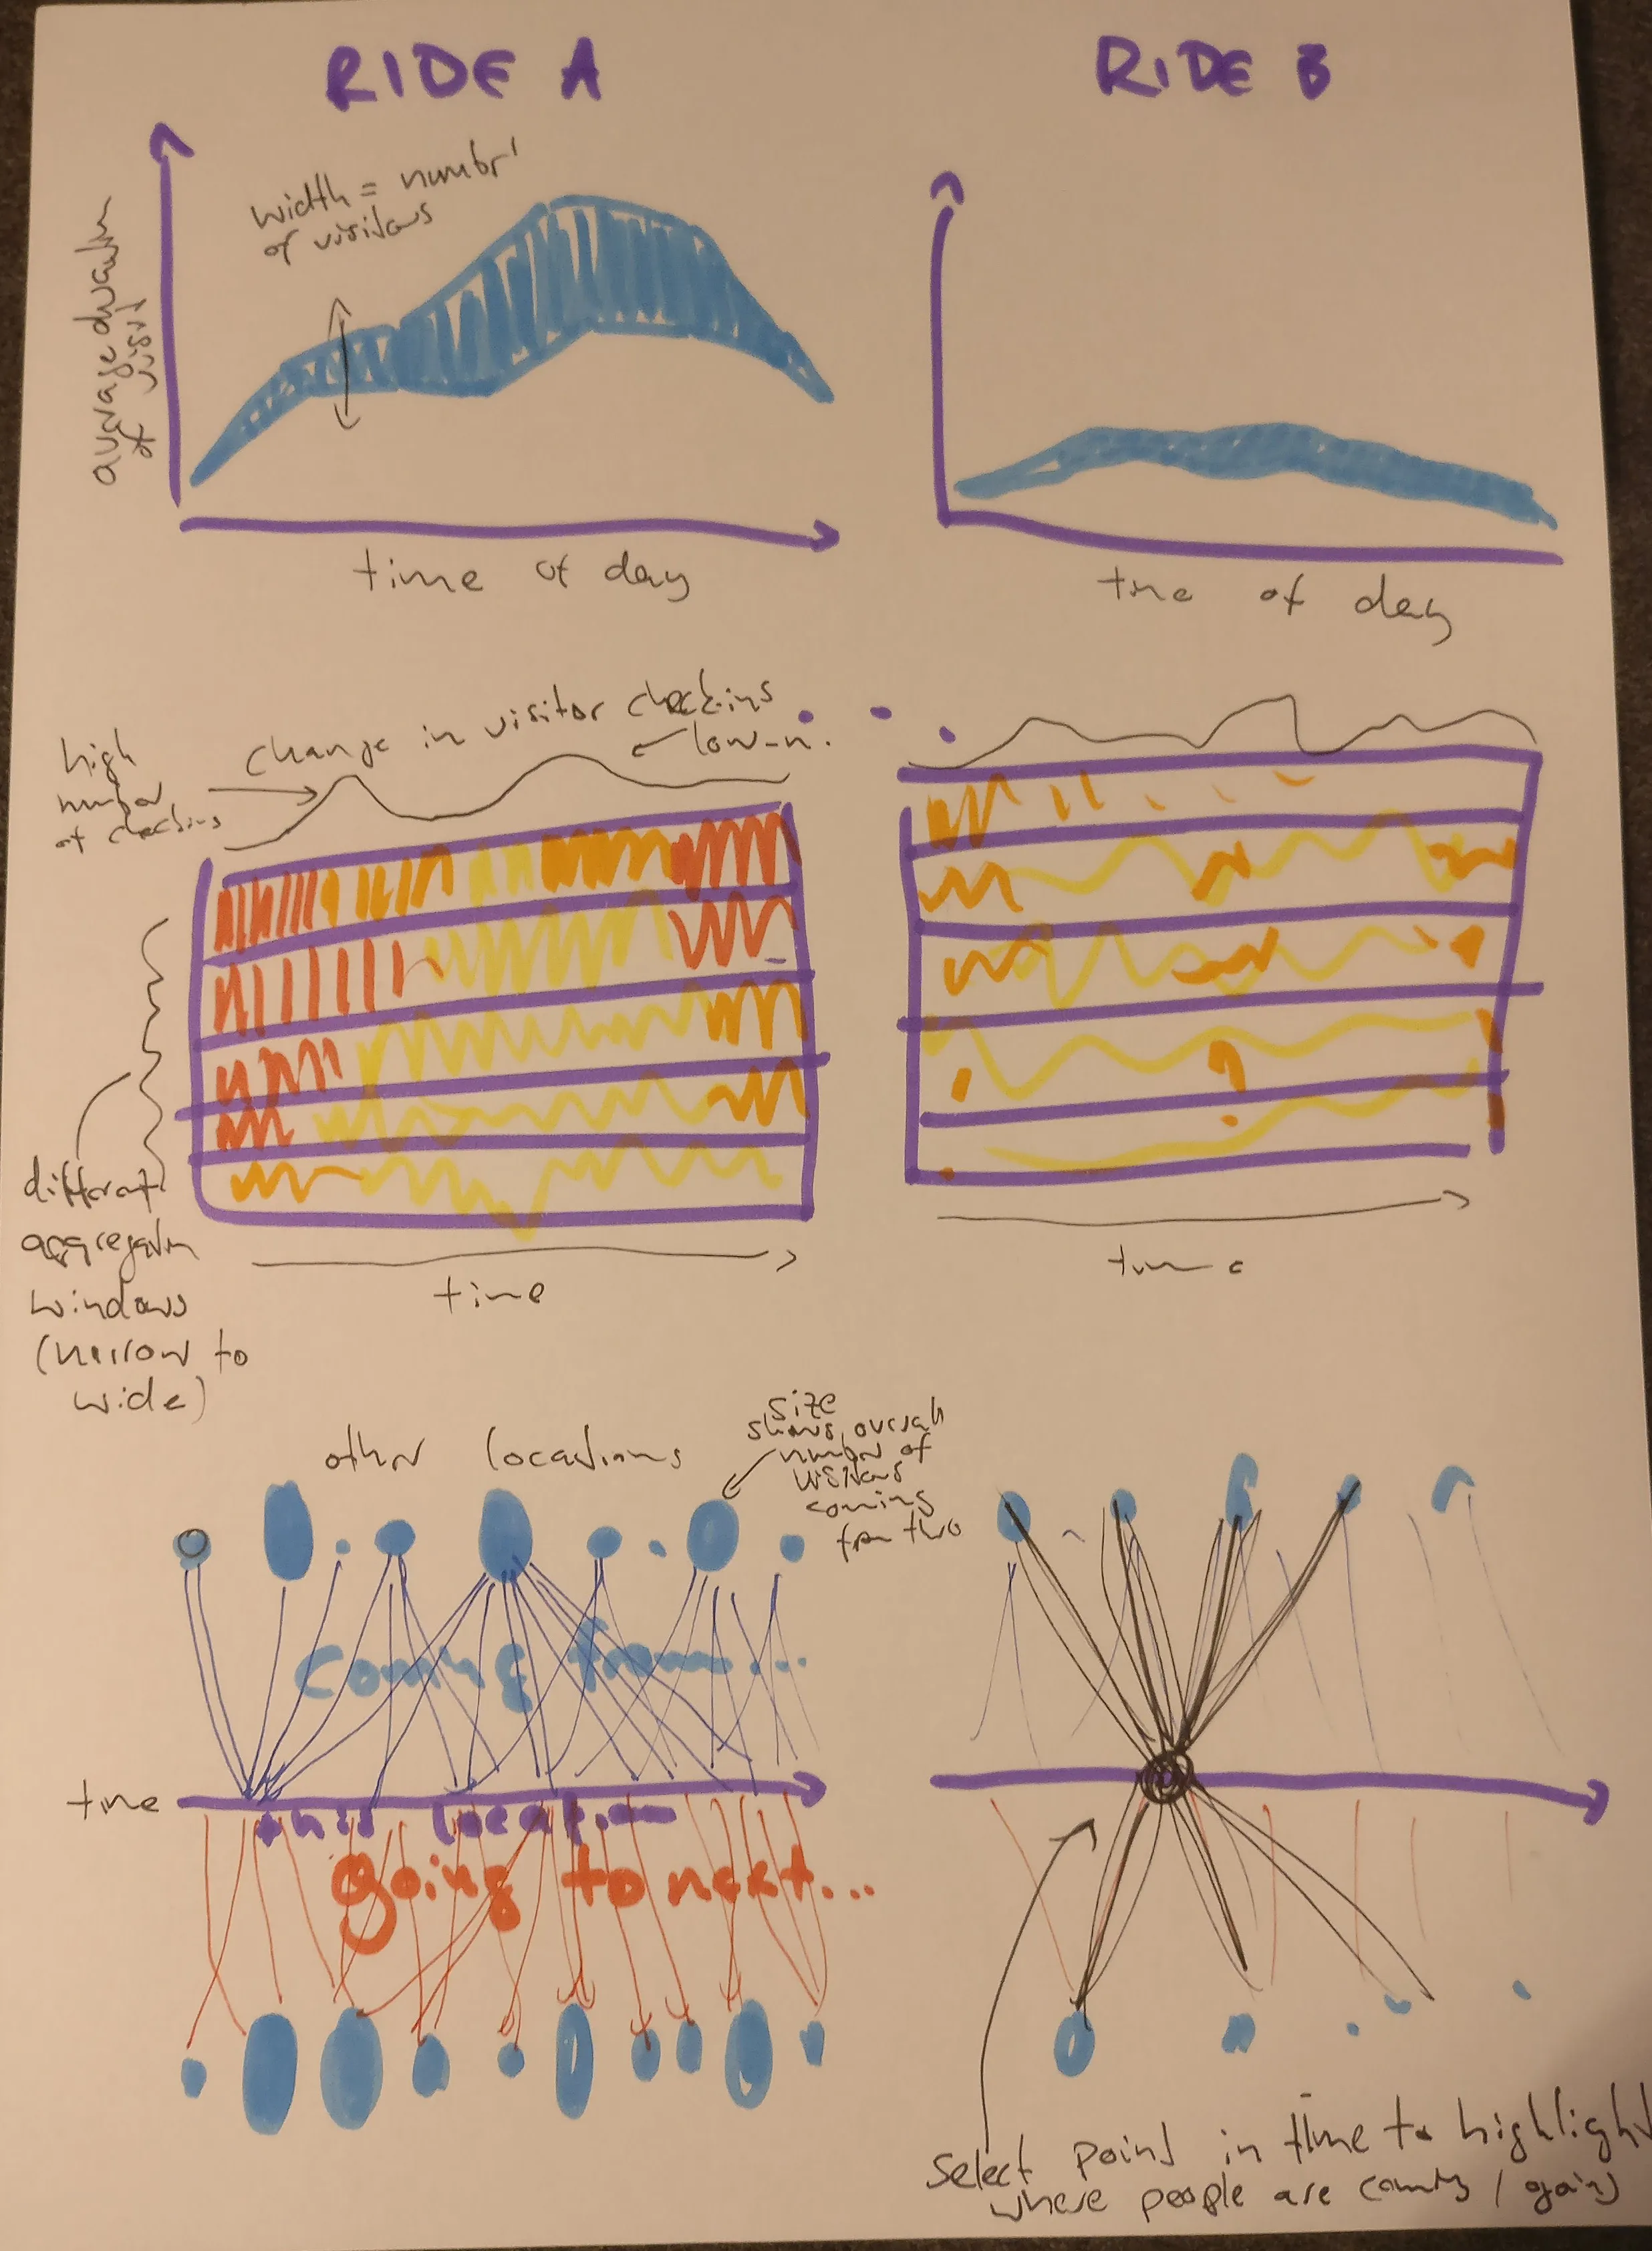 RIDE A
RIDE B
width = numbr
of visitors
average duratn
of visit
time of day
tme of day
change in visitor checkins
low n.
high
number
of checkins
different
aggregatn
windows
(narrow to
wide)
time
time
other locations
size
shows overall
number of
visitors
coming
from
coming from...
time
this location
going to next...
Select point in time to highlight
where people are coming / going